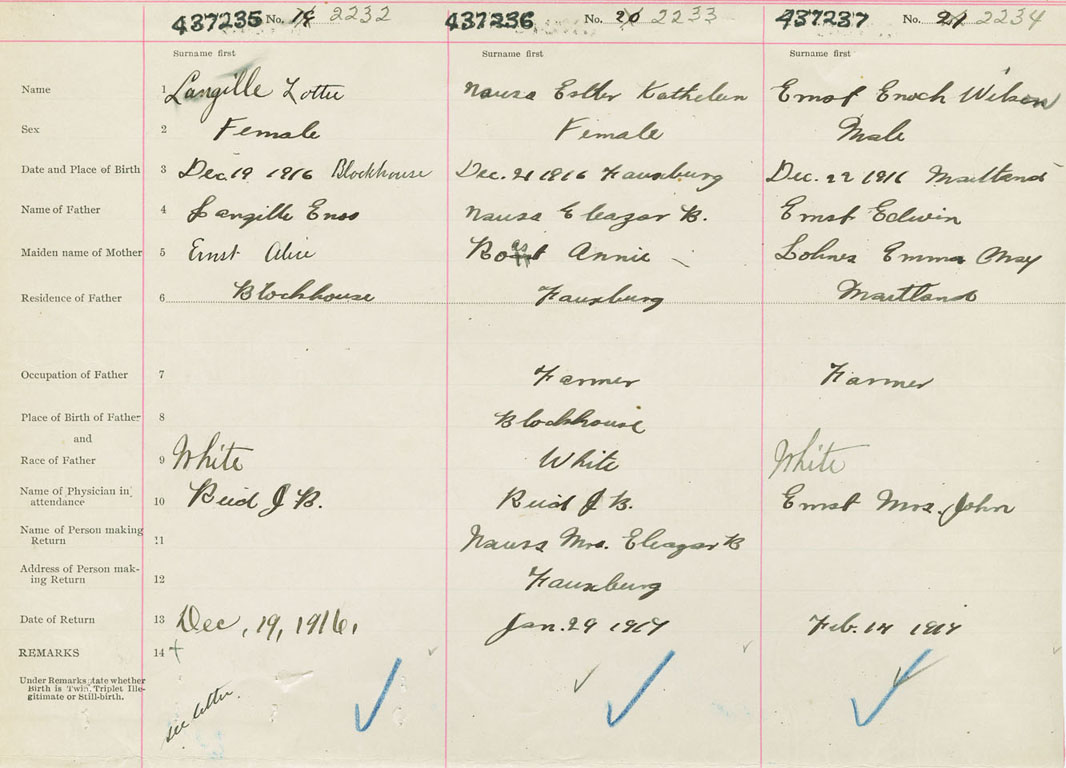 437235 No. 19 2232 437236 No. 20 2233 437237 No. 21 2234
Surname first Surname first Surname first
Name 1 Langille Lottie Nauss Esther Kathelun Ernst Enoch Wilson
Sex 2 Female Female Male
Date and Place of Birth 3 Dec. 19 1916 Blockhouse Dec. 21 1916 Fauxburg Dec. 22 1916 Maitland
Name of Father 4 Langille Enos Nauss Eleazar B. Ernst Edwin
Maiden name of Mother 5 Ernst Alice Annie Lohnes Emma May
Residence of Father 6 Blockhouse Fauxburg Maitland
Occupation of Father 7 Farmer Farmer
Place of Birth of Father 8 Blockhouse
and
Race of Father 9 White White White
Name of Physician in attendance 10 Reid J B. Reid J B. Ernst Mrs. John
Name of Person making Return 11 Nauss Mrs. Eleazar B
Address of Person making Return 12 Fauxburg
Date of Return 13 Dec, 19, 1916, Jan. 29 1917 Feb. 14 1917
REMARKS 14 +
Under Remarks state whether
Birth is Twin, Triplet Ille-
gitimate or Still-birth.
see letter.